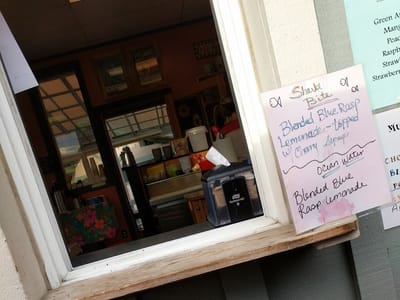 Shark
Bite
Blended Blue Rasp
Lemonade - topped
w/ Cherry Syrup
Ocean Water
Blended Blue
Rasp Lemonade
Green A
Mang
Peac
Raspb
Straw
Strawbe
MU